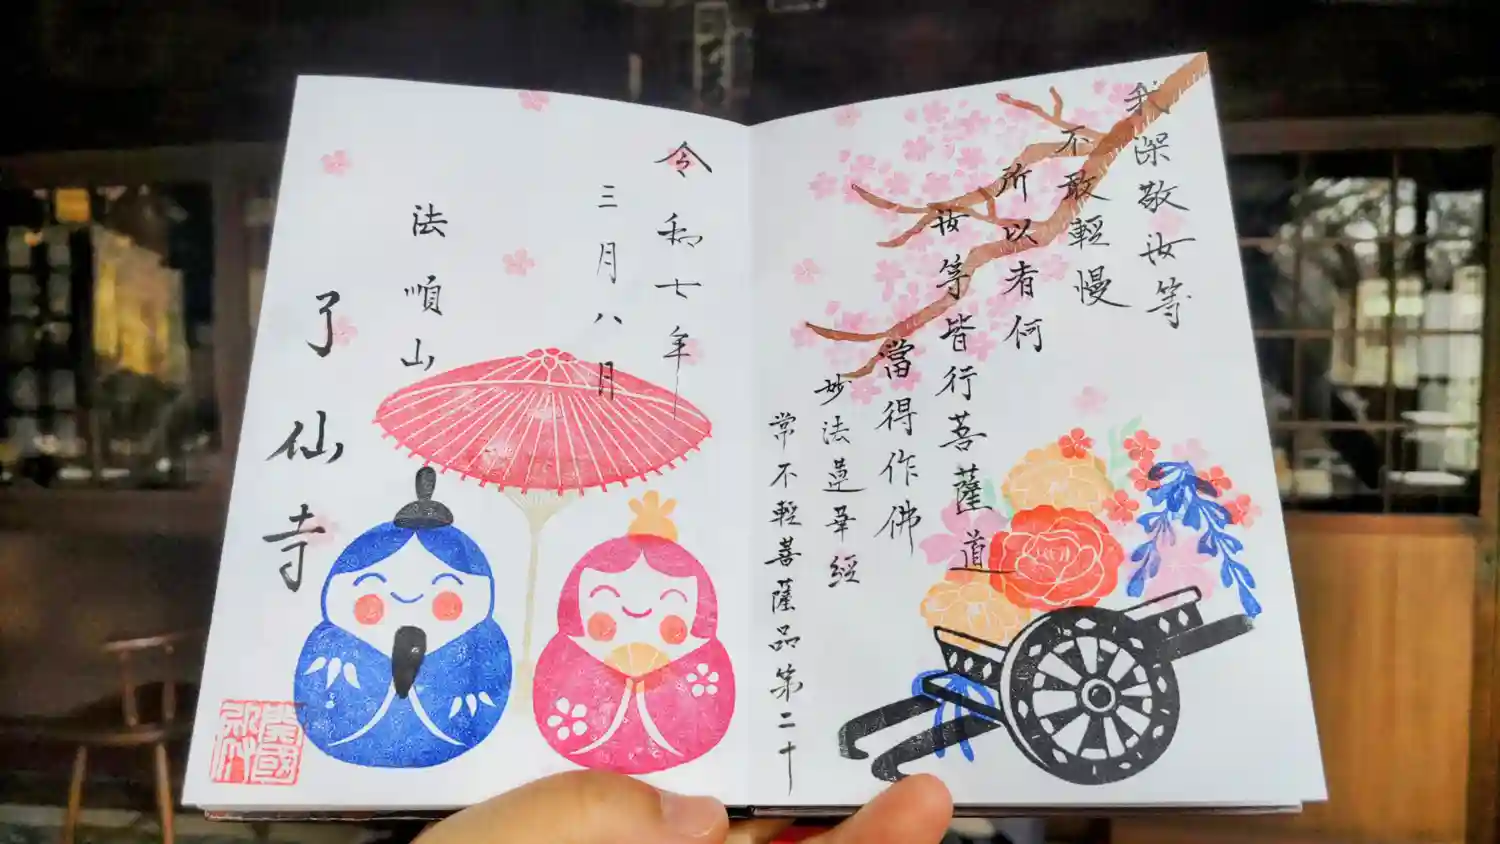 我深敬汝等
不敢輕慢
所以者何
汝等皆行菩薩道
當得作佛
妙法蓮華經
常不輕菩薩品第二十
令和七年
三月八日
法順山
了仙寺